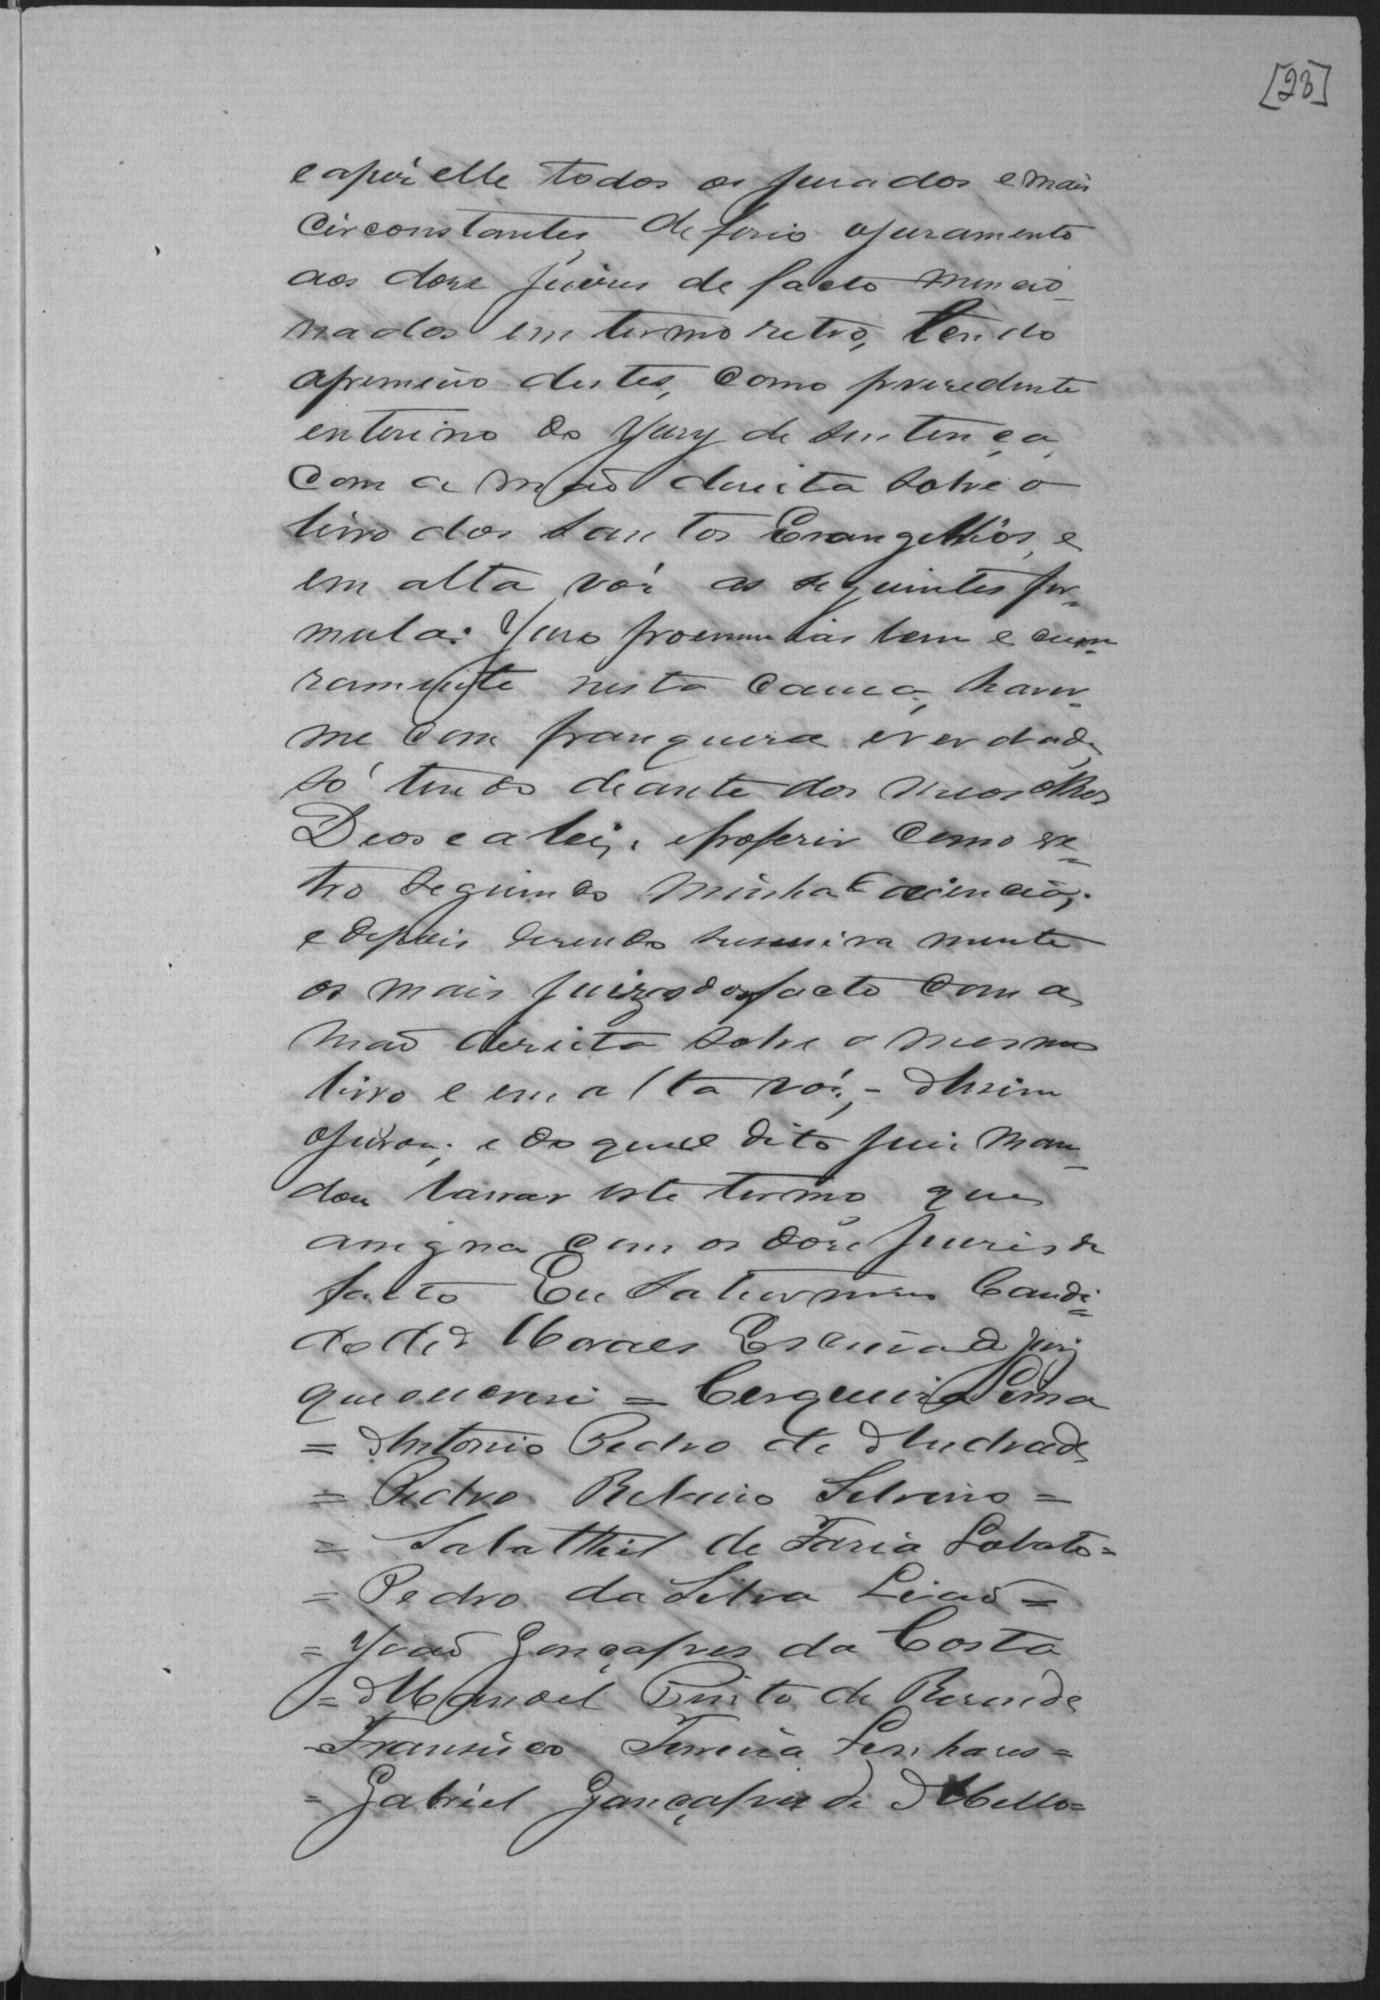 [23]
e após elle todos os jurados e mais
circonstantes, deferio o juramento
aos doze juizes de facto mencio-
nados em termo retro, lendo
o primeiro destes, como prezedente
enterino do Jury de sentença,
com a mão direita sobre o
livro dos Santos Evangelhos, e
em alta vóz as seguintes for-
mula: Juro pronunciar bem e cin-
ramente nesta causa, haver-
me com franqueza e verdade,
só tendo deante dos meos olhos
Deos e a lei; e proferir como ve-
tro segundo minha Cociencia;
e depois dizendo sussiva mente
os mais juizes do facto com a
mão direita sobre o mesmo
livro e em alta vóz, - Assim
o juro; e do que o dito juiz man-
dou lavrar este termo que
assigna com os doze juizes de
facto Eu Saturnino Candi-
do de Moraes Escrivão do jury
que o escrevi = Cerqueira Lima
= Antonio Pedro de Andrade
= Pedro Ribeiro Silverio =
= Salathiel de Faria Lobato =
= Pedro da Silva Leão =
= João Gonçalves da Costa
= Manoel Pinto de Rezende
- Francisco Ferreira Linhares =
= Gabriel Gonçalves de Mello =